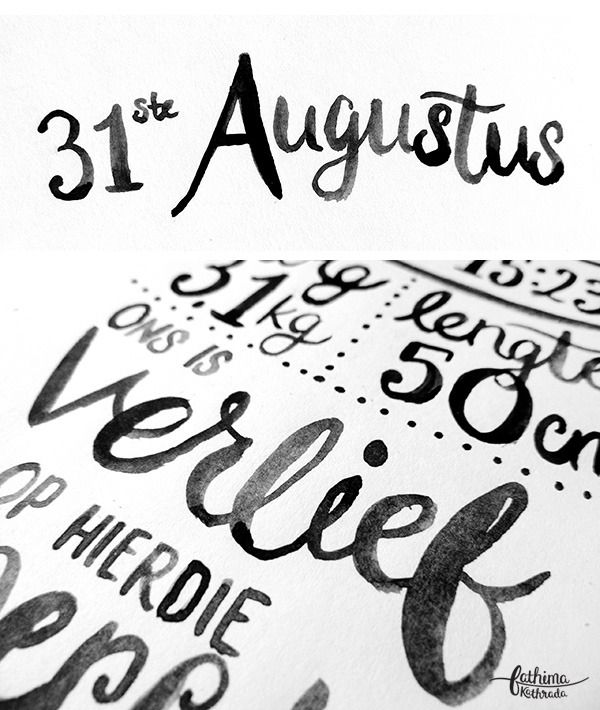 31ste Augustus
15:23
31kg
lengte
50cm
ONS IS
verlief
OP HIERDIE
fathima
Kathrada